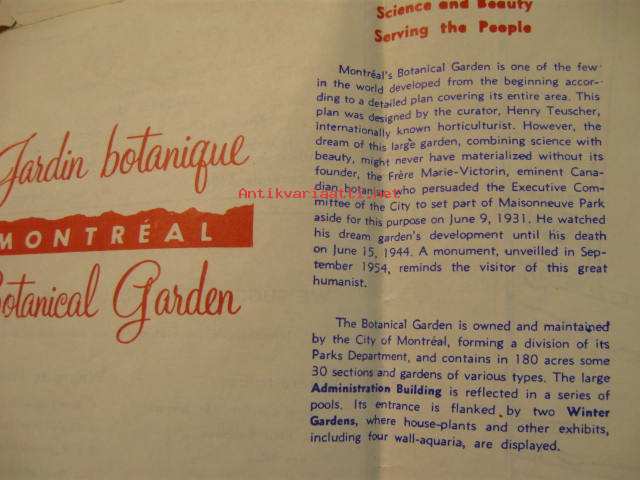 Jardin botanique
MONTRÉAL
Botanical Garden
Science and Beauty
Serving the People
Montréal's Botanical Garden is one of the few
in the world developed from the beginning accor-
ding to a detailed plan covering its entire area. This
plan was designed by the curator, Henry Teuscher,
internationally known horticulturist. However, the
dream of this large garden, combining science with
beauty, might never have materialized without its
founder, the Frère Marie-Victorin, eminent Cana-
dian botanist, who persuaded the Executive Com-
mittee of the City to set part of Maisonneuve Park
aside for this purpose on June 9, 1931. He watched
his dream garden's development until his death
on June 15, 1944. A monument, unveilled in Sep-
tember 1954, reminds the visitor of this great
humanist.
The Botanical Garden is owned and maintained
by the City of Montréal, forming a division of its
Parks Department, and contains in 180 acres some
30 sections and gardens of various types. The large
Administration Building is reflected in a series of
pools. Its entrance is flanked by two Winter
Gardens, where house-plants and other exhibits,
including four wall-aquaria, are displayed.
Antikvariaatti.net